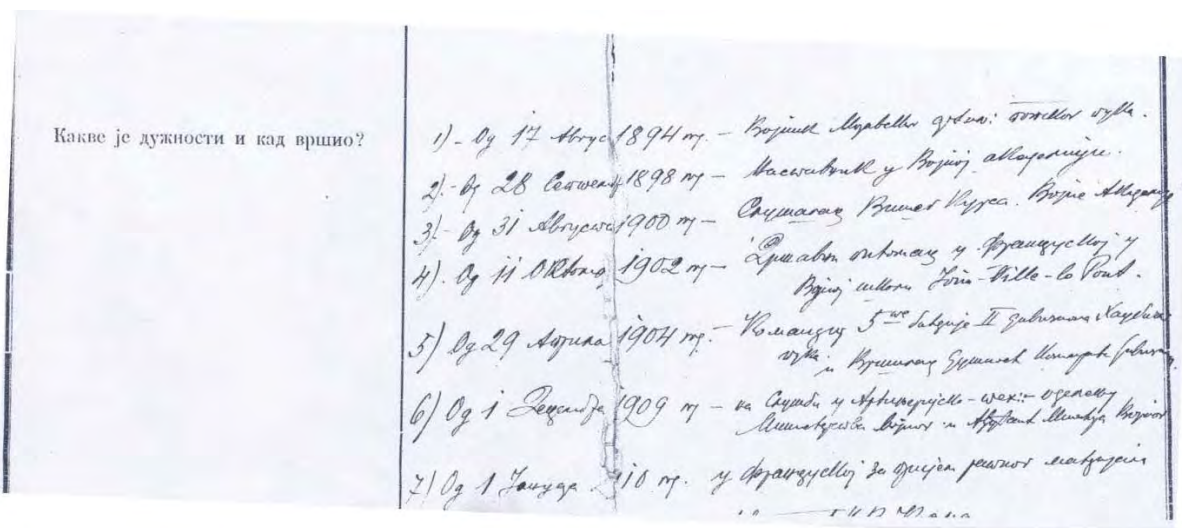 Какве је дужности и кад вршио?
1) - Од 17 Август 1894 год. - Војник
2). - Од 28 Септемб 1898 год - Наставник у Војној академији.
3). - Од 31 Августа 1900 год - Слушалац Вишег Курса Војне Академије
4). Од 11 Октомв 1902 год - Државни питомац у Француској у
Војној школи Join-Ville-le Pont.
5) Од 29 Априла 1904 год. - Командир 5те батерије II дивизиона
и Вршилац дужности Команд
6) Од 1 Децембра 1909 год - на Служби у Артилеријско - тех: оделењу
Министарства Војног и Ађутант Министра Војног
7) Од 1 Јануара 910 год. у Француској за пријем ратног материјала